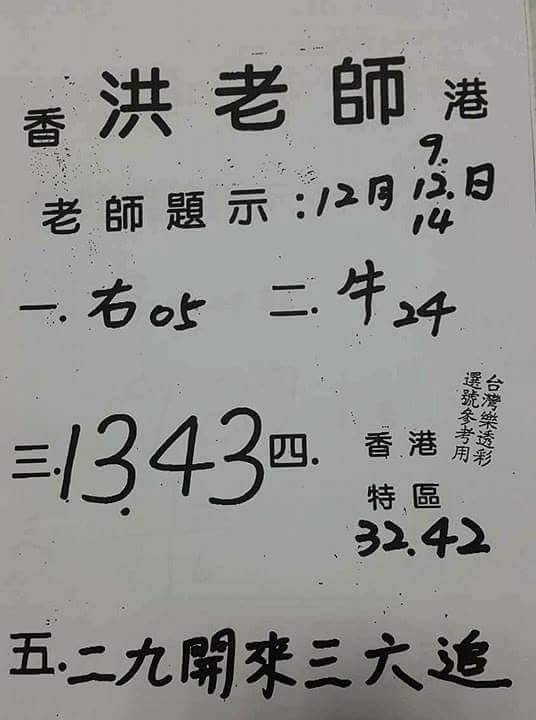 香 洪老師 港
老師題示:12月9.12.14日
一.右05 二.牛24
台灣樂透彩
選號參考用
三.13.43 四.香港
特區
32.42
五.二九開來三六追